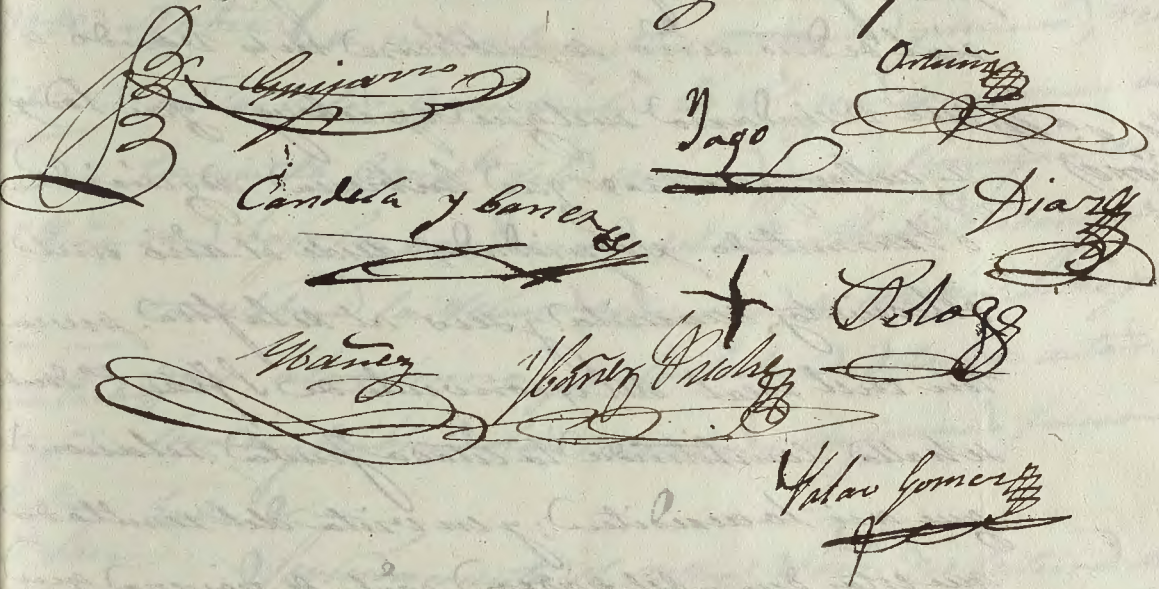 Guijarro
Ortuño
Yago
Candela y bañez
Diaz
Polo
Ybañez
Ybañez Puche
Palao Gomez